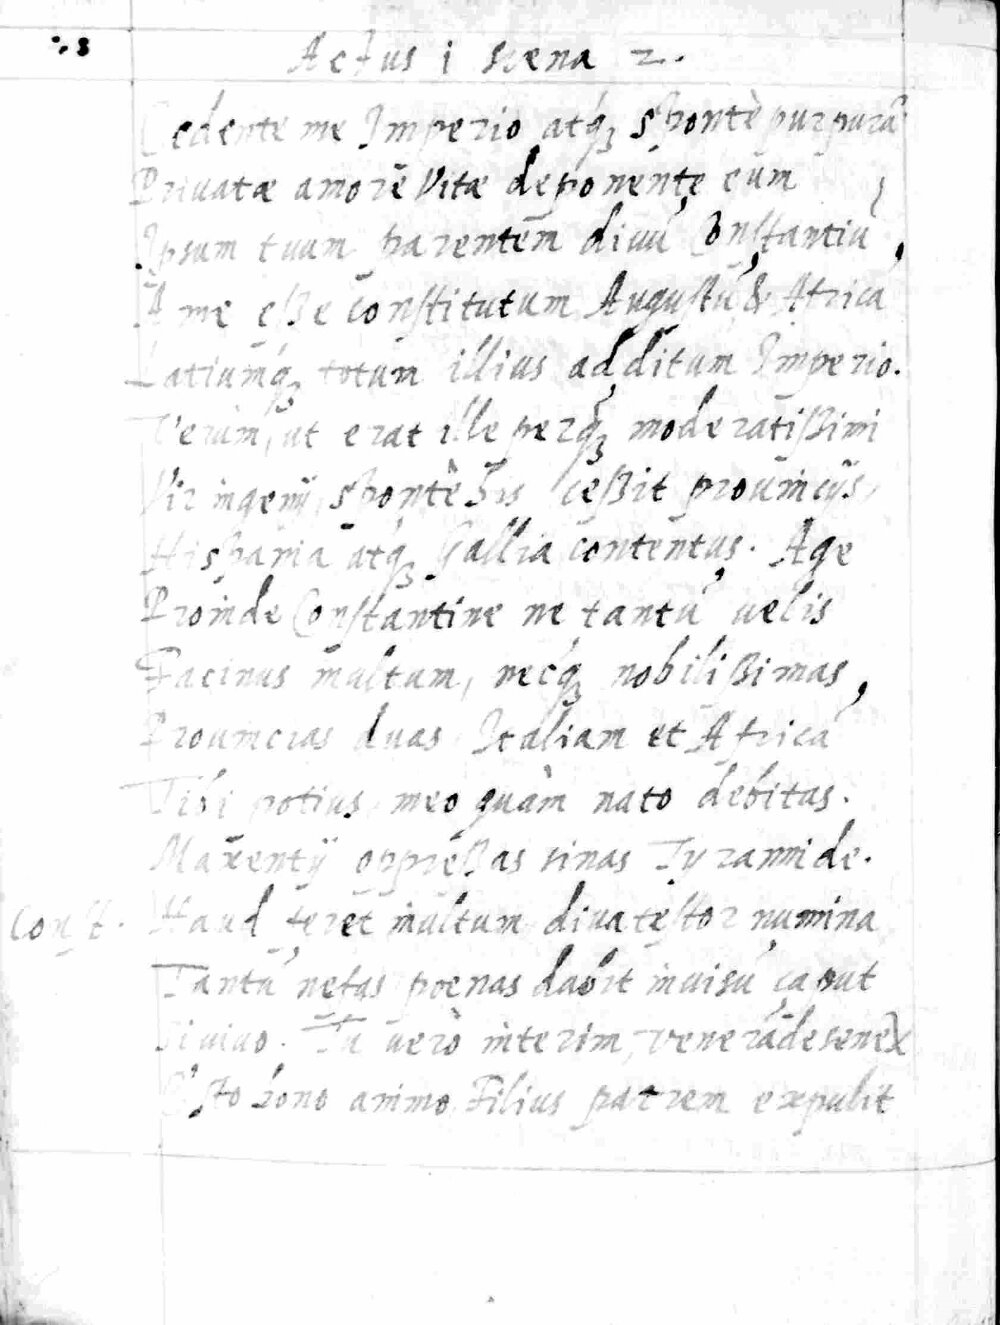 8
Actus i scena 2.
Cedente me Imperio atq́ꝫ spontè purpurā
Privatæ amorē vitæ deponente cum
Ipsum tuum parentem divū Constantiū,
A me eße constitutum Augustū & Africā
Latiumq́ꝫ totum illius additum Imperio.
Verùm, ut erat ille perq̃ꝫ moderatißimi
Vir ingenij, spontè his ceßit provincijs,
Hispania atq́ꝫ Gallia contentus. Age
Proinde Constantine ne tantū velis
Facinus inultum, necq́ꝫ nobilißimas,
Provincias duas Italiam et Africā
Tibi potius meo quàm nato debitas.
Maxentij oppreßas sinas Tyrannide.
Const. Haud feret inultum diva testor numina
Tantū nefas poenas dabit invisū caput
Si vivo. Tu verò interim, venerāde senex
Esto bono animo Filius patrem expulit